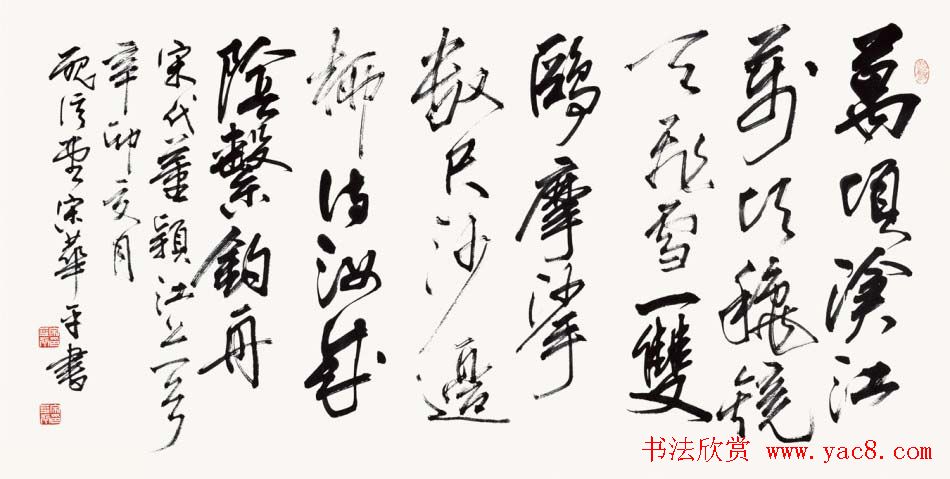 萬頃滄江
萬頃穐鏡
天飛雪一雙
鷗摩挲
數尺沙邊
柳待汝成
陰繫釣舟
宋代董穎江上一首
辛卯夏月
宋華平書
书法欣赏 www.yac8.com